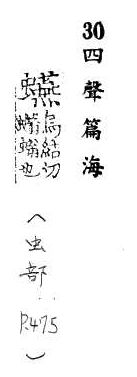 30四聲篇海
烏結切
蠮螉也
（虫部 P.475）